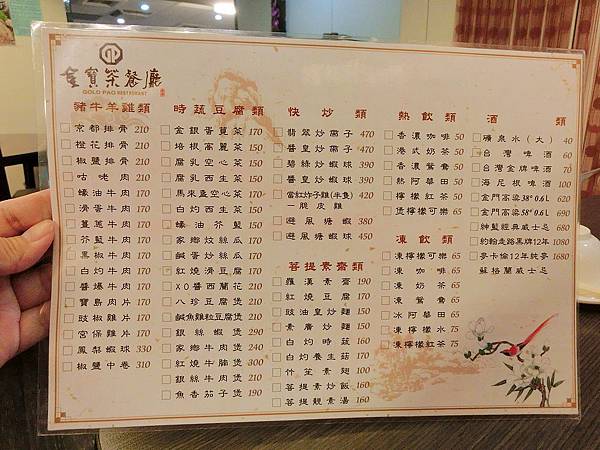 金寶茶餐廳
GOLD PAO RESTAURANT
豬牛羊雞類
京都排骨 210
橙花排骨 210
椒鹽排骨 210
咕咾肉 210
蠔油牛肉 170
滑蛋牛肉 170
薑蔥牛肉 170
芥藍牛肉 170
黑椒牛肉 170
白灼牛肉 170
醬爆牛肉 170
寶島肉片 170
豉椒雞片 170
宮保雞片 170
鳳梨蝦球 330
椒鹽中卷 310
時蔬豆腐類
金銀蛋莧菜 170
培根高麗菜 150
腐乳空心菜 150
腐乳西生菜 150
馬來盞空心菜 170
白灼西生菜 150
蠔油芥藍 150
家鄉炆絲瓜 170
鹹蛋炒絲瓜 170
紅燒滑豆腐 170
XO醬西蘭花 210
八珍豆腐煲 210
鹹魚雞粒豆腐煲 210
銀絲蝦煲 290
家鄉牛肉煲 240
紅燒牛腩煲 300
銀絲牛肉煲 210
魚香茄子煲 190
快炒類
翡翠炒帶子 470
醬皇炒帶子 470
碧綠炒蝦球 390
醬皇炒蝦球 390
當紅炸子雞(半隻) 420
—脆皮雞
避風塘蝦 380
避風塘蝦球 450
菩提素齋類
羅漢素齋 190
紅燒豆腐 170
豉油皇炒麵 150
素廣炒麵 150
白灼時蔬 160
白灼養生菇 170
竹笙素翅 160
菩提素炒飯 160
菩提靚素湯 160
熱飲類
香濃咖啡 50
港式奶茶 50
香濃鴛鴦 50
熱阿華田 50
檸檬紅茶 50
煲檸檬可樂 65
凍飲類
凍檸檬可樂 65
凍咖啡 65
凍奶茶 65
凍鴛鴦 65
冰阿華田 65
凍檸檬水 75
凍檸檬紅茶 75
酒類
礦泉水(大) 40
台灣啤酒 60
台灣金牌啤酒 70
海尼根啤酒 100
金門高梁38° 0.6L 620
金門高梁58° 0.6L 690
紳藍經典威士忌 680
約翰走路黑牌12年 1080
夢卡倫12年純麥 1680
蘇格蘭威士忌